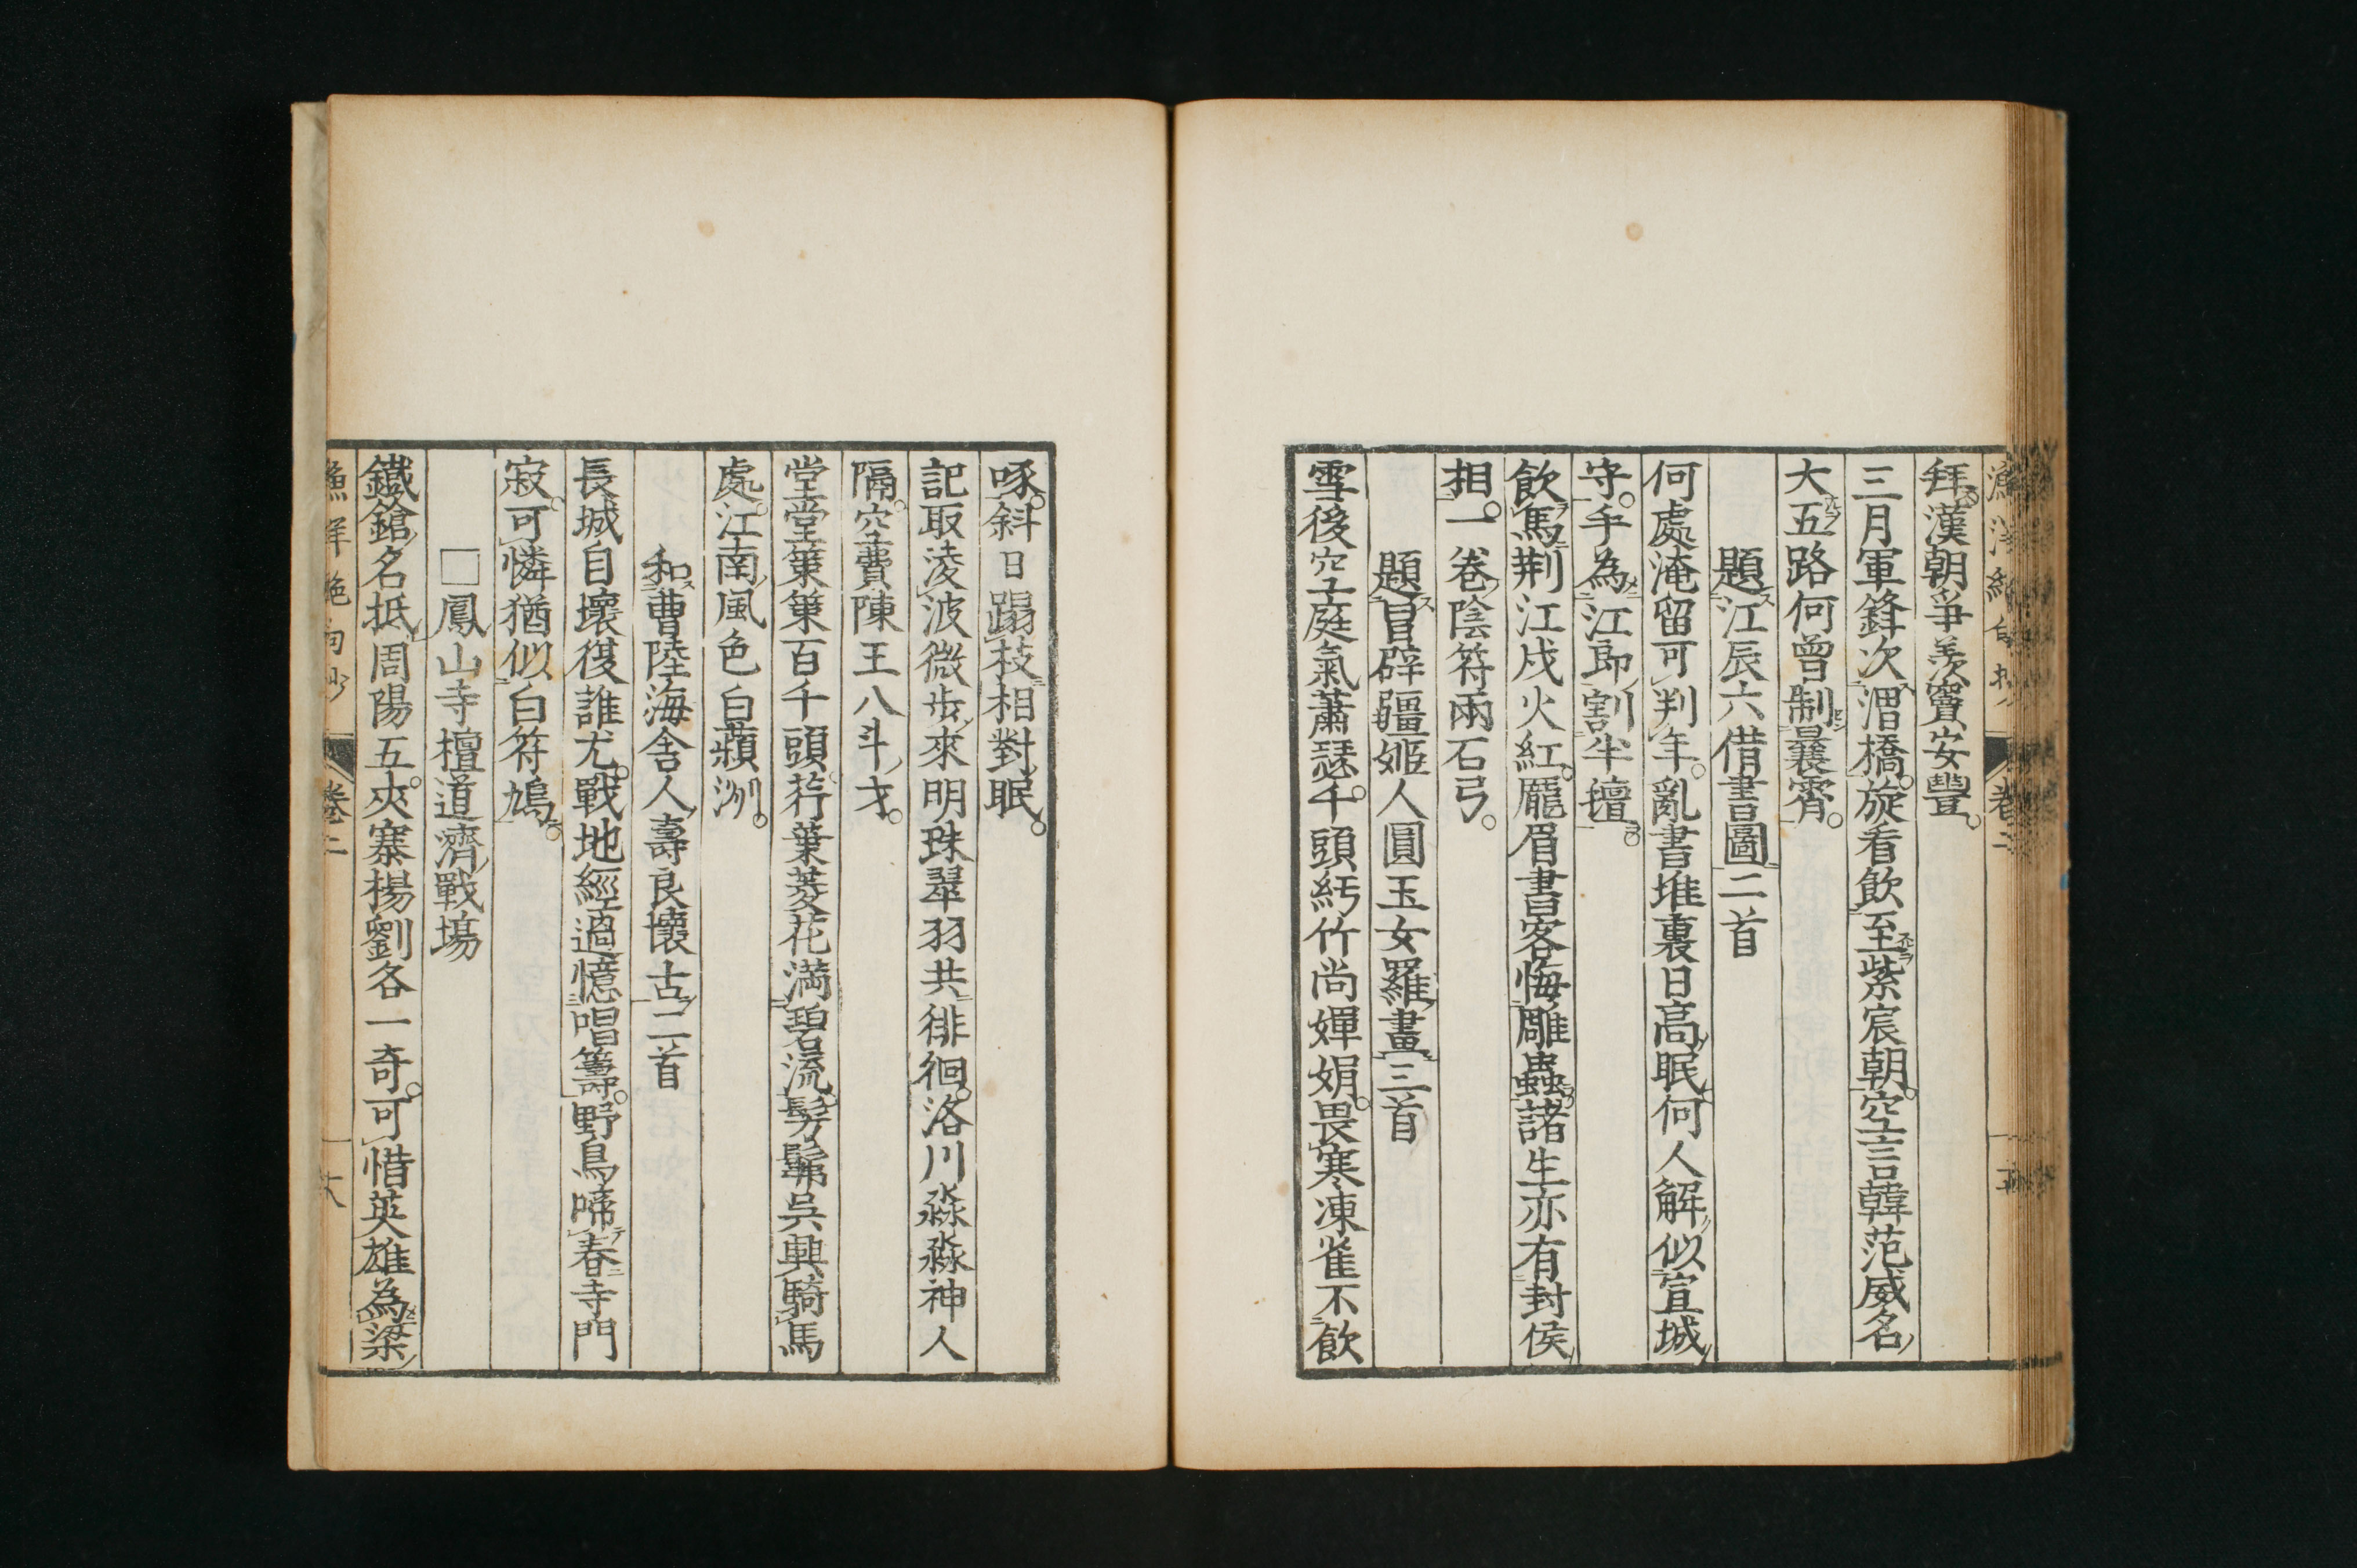 拜漢朝爭羨竇安豐
三月軍鋒次渭橋旋看飲至紫宸朝空言韓范威名
大五路何曾制曩霄
題江辰六借書圖二首
何處淹留可判年亂書堆裏日高眠何人解似宣城
守手為江郎割半氊
飲馬荆江戍火紅龎眉書客悔雕蟲諸生亦有封侯
相一卷陰符兩石弓
題冒辟疆姬人圓玉女羅畫三首
雪後空庭氣蕭瑟千頭紆竹尚嬋娟畏寒凍雀不飲
啄斜日蹋枝相對眠
記取淩波微步來明珠翠羽共徘徊洛川淼淼神人
隔空費陳王八斗才
堂堂策策百千頭荇葉菱花滿碧流髣髴吳興騎馬
處江南風色白蘋洲
和曹陸海舍人壽良懷古二首
長城自壞復誰尤戰地經過憶唱籌野鳥啼春寺門
寂可憐猶似白符鳩
□鳳山寺檀道濟戰場
鐵鎗名抵周陽五夾寨楊劉各一奇可惜英雄為梁
漁洋絶句抄
卷二